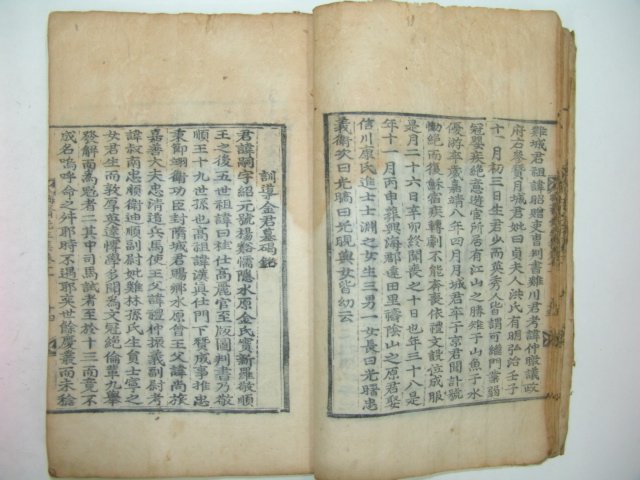 雞城君祖諱胎贈吏曺判書雞川君考諱仲暾議政
府右參贊月城君妣曰貞夫人洪氏有明弘治壬子
十一月初三日生君少而英秀人皆謂可繼門業弱
冠嬰疾絕意遊宦所居有江山之勝雉子山魚子水
優游卒歲嘉靖八年四月月城君卒于京君聞訃號
慟絕而復穌當疾轉劇不能奔喪依禮文設位成服
是月二十六日辛卯歿年三十日也年三十八是
年十一月丙申葬興海郡達田里禱陰山之原君娶
信川康氏進士士淵之女生三男一女長曰光暿忠
義衛次曰光皜曰光晛與女皆幼云
訓導金君墓碣銘
君諱嗣宇紹元號揚豁慵隱水原金氏實新羅敬順
王之後五世祖諱曰桂仕高麗官至版圖判書乃敬
順王十九世孫也高祖諱漢眞仕門下贊成事推忠
秉節翊衛功臣封隋城君賜鄉水原曾王父諱尚旅
嘉善大夫忠清道兵馬使王父諱禮仲振義副尉考
諱叔南忠順衛迪順副尉妣雞林孫氏生員士寧之
女君生而敦厚英達博學多聞爲文冠絕倫軰九舉
發解而爲魁者二其中司馬試者至於十三而竟不
成名嗚呼命之舛耶時不遇耶奕世餘慶叢而未稔